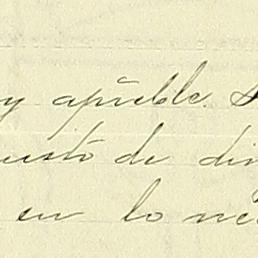 y apreble. S
uesto de din
en lo ne